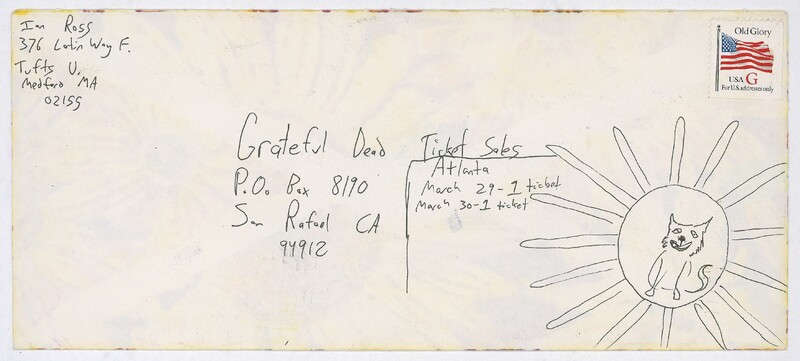 Ian Ross
376 Latin Way F.
Tufts U.
Medford MA
02155
Old Glory
USA G
For U.S. addresses only
Grateful Dead Ticket Sales
P.O. Box 8190
San Rafael CA
94912
Atlanta
March 29-1 ticket
March 30-1 ticket